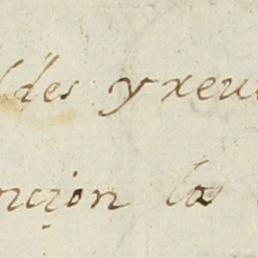 des y xeu
ncion los